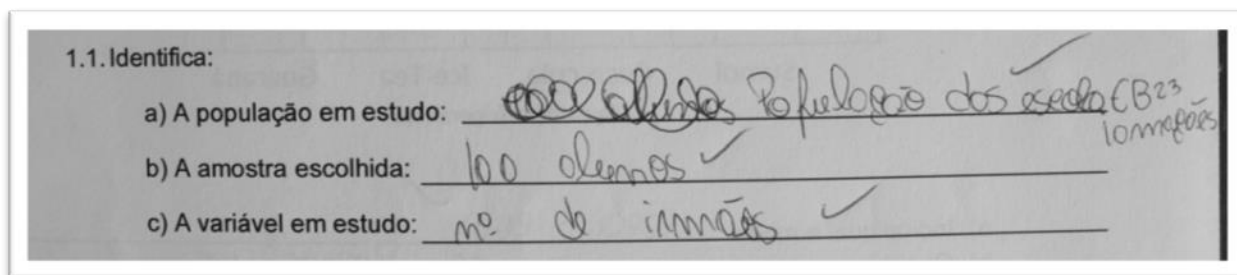 1.1. Identifica:
a) A população em estudo: População dos escola EB23
b) A amostra escolhida: 100 alunos
c) A variável em estudo: nº de irmãos